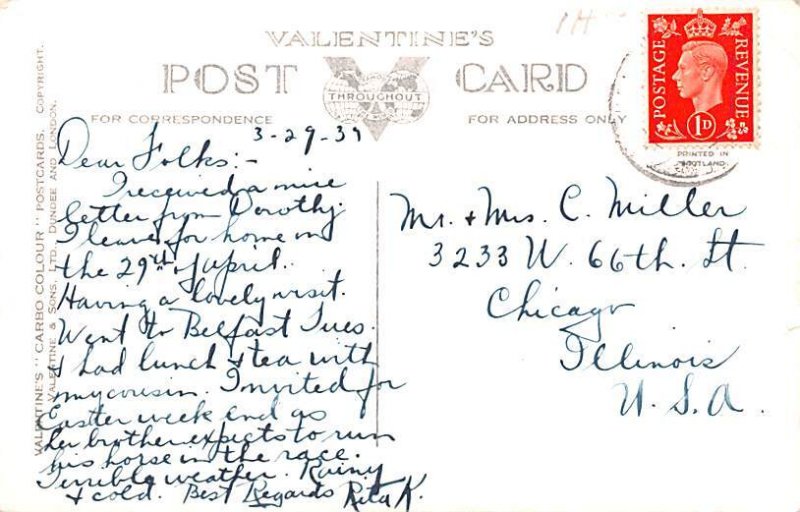 VALENTINE'S
POST CARD
THROUGHOUT
FOR CORRESPONDENCE
FOR ADDRESS ONLY
VALENTINE'S "CARBO COLOUR" POSTCARDS. COPYRIGHT.
VALENTINE & SONS, LTD., DUNDEE AND LONDON.
PRINTED IN
SCOTLAND
POSTAGE
REVENUE
1D
3-29-39
Dear Folks:-
I received a nice
letter from Dorothy.
I leave for home on
the 29th of April.
Having a lovely visit.
Went to Belfast Tues.
& had lunch & tea with
my cousin. Invited for
Easter week end as
her brother expects to run
his horse in the race.
Terrible weather. Rainy
& cold. Best Regards Rita K.
Mr. & Mrs. C. Miller
3233 W. 66th. St.
Chicago
Illinois
U.S.A.